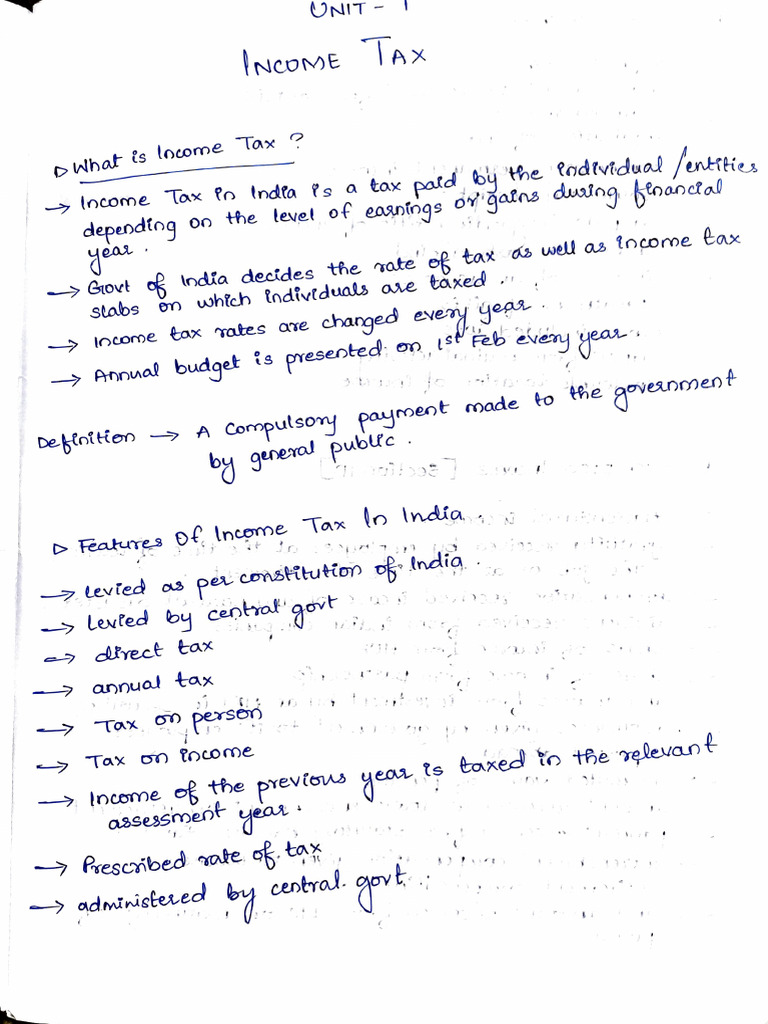 UNIT - 1
INCOME TAX
▷ What is Income Tax ?
→ Income Tax in India is a tax paid by the individual/entities
depending on the level of earnings or gains during financial
year.
→ Govt of India decides the rate of tax as well as income tax
slabs on which individuals are taxed.
→ Income tax rates are changed every year.
→ Annual budget is presented on 1st Feb every year.
Definition → A compulsory payment made to the government
by general public.
▷ Features Of Income Tax In India.
→ levied as per constitution of India.
→ Levied by central govt
→ direct tax
→ annual tax
→ Tax on person
→ Tax on income
→ Income of the previous year is taxed in the relevant
assessment year.
→ Prescribed rate of tax
→ administered by central govt.